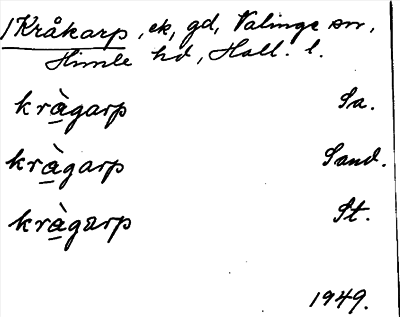 1 Kråkarp, ek, gd, Valinge sn,
Himle hd, Hall. l.
kràgarp Sa.
kràgarp Sand.
kràgarp St.
1949.